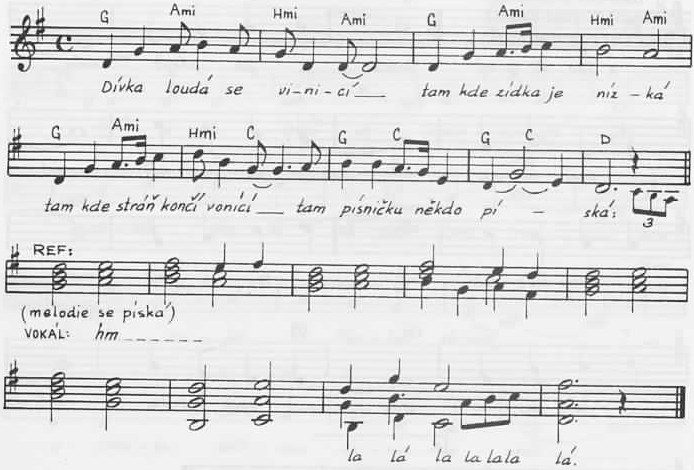 G Ami Hmi Ami G Ami Hmi Ami
Dívka loudá se vi-ni-cí___ tam kde zídka je níz-ká
G Ami Hmi C G C G C D
tam kde stráň končí vonící___ tam písničku někdo pí - ská:
3
REF:
(melodie se píská)
VOKÁL: hm______
la lá la la la la lá.